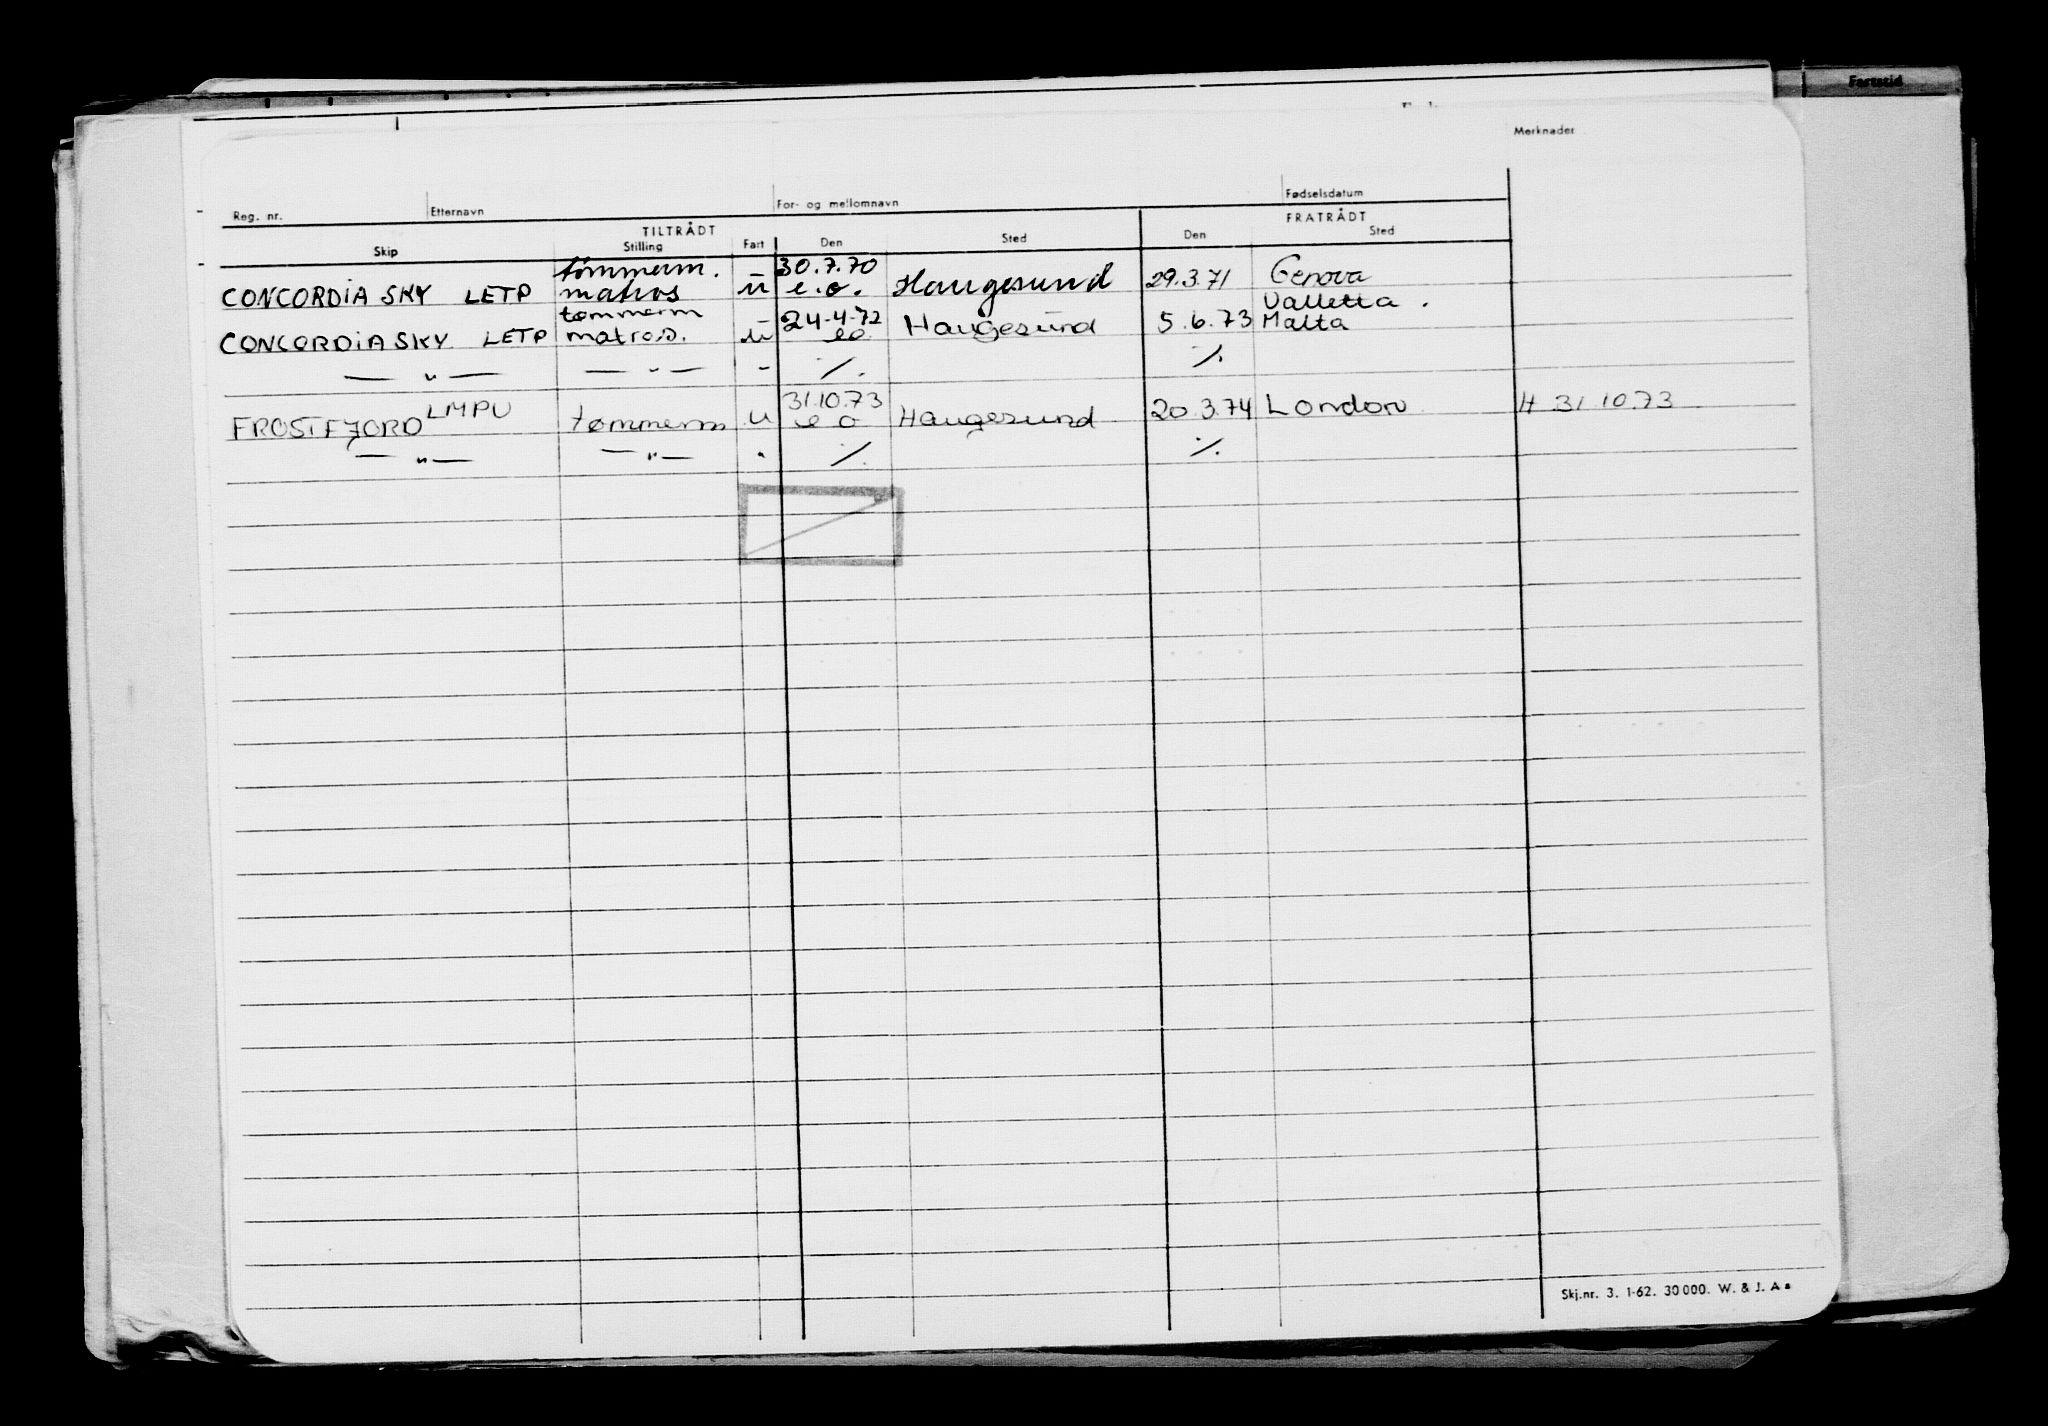 Fartstid
Merknader
Reg. nr. Etternavn For- og mellomnavn Fødselsdatum
TILTRÅDT FRATRÅDT
Skip Stilling Fart Den Sted Den Sted
tømmerm. 30.7.70
CONCORDIA SKY LETP matros u e.o. Haugesund 29.3.71 Genova
tømmerm 24-4-72 Valletta.
CONCORDIA SKY LETP matros. u eo. Haugesund 5.6.73 Malta
— " — — " — - ./. ./.
31.10.73
FROSTFJORD LMPU tømmerm u e o Haugesund 20.3.74 London H 31.10.73
— " — — " — " ./. ./.
Skj.nr. 3. 1-62. 30000. W. & J. As